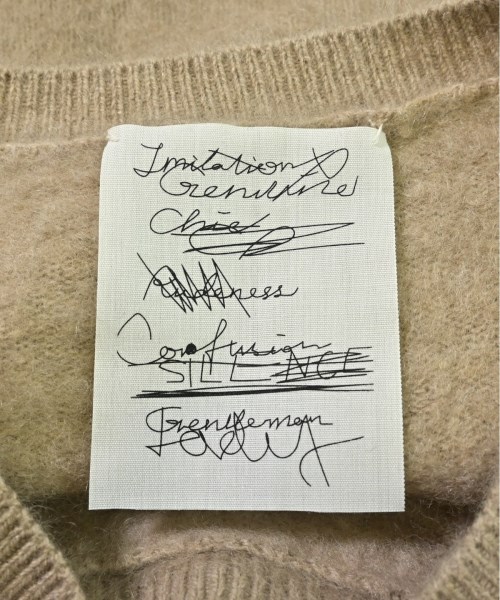 Imitation
Genuine
Chic
Rudeness
Confusion
SILLENCE
Gentleman
Lady